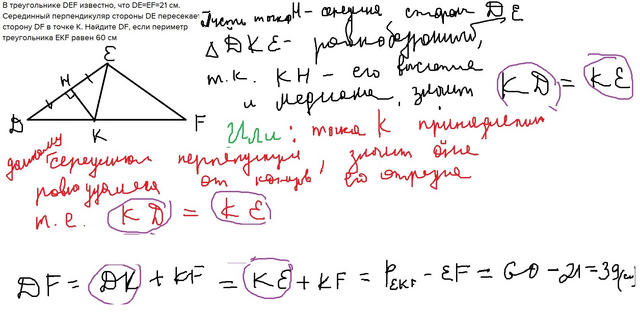 В треугольнике DEF известно, что DE=EF=21 см.
Серединный перпендикуляр стороны DE пересекает
сторону DF в точке K. Найдите DF, если периметр
треугольника EKF равен 60 см
Пусть точка H - середина стороны DE
Δ DKE - равнобедренный,
т.к. KH - его высота
и медиана, значит KD = KE
E
H
D
K
F
Или: точка K принадлежит
данному серединном перпендикуляр, значит она
равноудалена от концов его отрезка
т.е. KD = KE
DF = DK + KF = KE + KF = P EKF - EF = 60 - 21 = 39 (см)